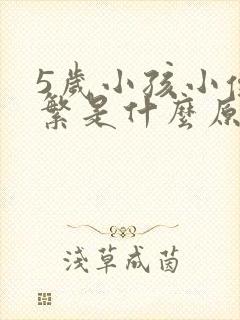 5歲小孩小
繁是什麼原
淺草成茵